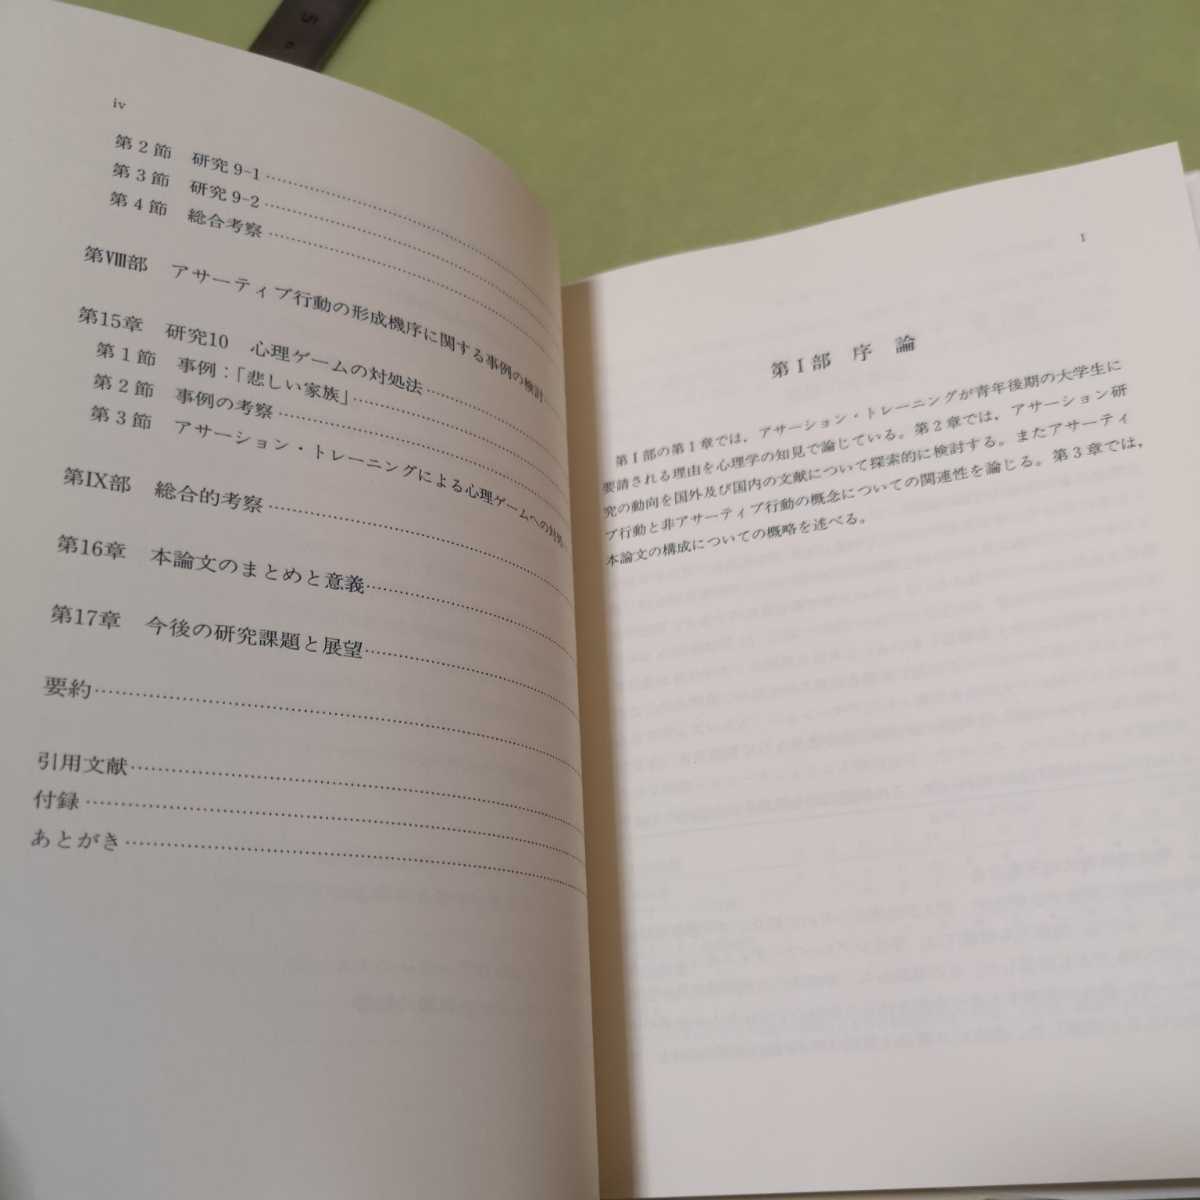 5
iv
第2節　研究9-1
第3節　研究9-2
第4節　総合考察
第Ⅷ部　アサーティブ行動の形成機序に関する事例の検討
第15章　研究10　心理ゲームの対処法
第1節　事例：「悲しい家族」
第2節　事例の考察
第3節　アサーション・トレーニングによる心理ゲームへの対処
第Ⅸ部　総合的考察
第16章　本論文のまとめと意義
第17章　今後の研究課題と展望
要約
引用文献
付録
あとがき
1
第Ⅰ部　序　論
第Ⅰ部の第1章では，アサーション・トレーニングが青年後期の大学生に
要請される理由を心理学の知見で論じている。第2章では，アサーション研
究の動向を国外及び国内の文献について探索的に検討する。またアサーティ
ブ行動と非アサーティブ行動の概念についての関連性を論じる。第3章では，
本論文の構成についての概略を述べる。